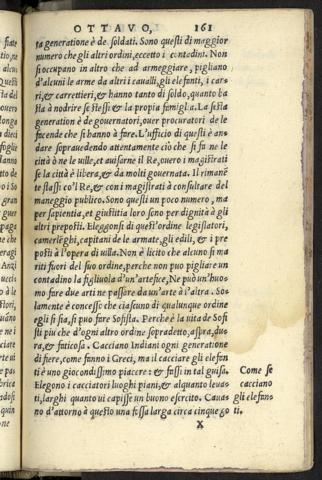 OTTAVO, 161
ta generatione è de soldati. Sono questi di maggior
numero che gli altri ordini, eccetto i contadini. Non
si occupano in altro che ad armeggiare, pigliano
d'alcuni le arme da altri i caualli, gli elefanti, i car-
ri, & carrettieri, & hanno tanto di soldo, quanto ba
sta à nodrire se stessi & la propia famiglia. La sesta
generation è de gouernatori, ouer procuratori de le
facende che si hanno à fare. L'ufficio di questi è an-
dare soprauedendo attentamente ciò che si fa ne le
città ò ne le uille, et auisarne il Re, ouero i magistrati
se la città è libera, & da molti gouernata. Il rimanẽ
te stassi co'l Re, & con i magistrati à consultare del
maneggio publico. Sono questi un poco numero, ma
per sapientia, et giustitia loro sono per dignità à gli
altri preposti. Eleggonsi di quest'ordine legislatori,
camerlẽghi, capitani de le armate, gli edili, & i pre
posti à l'opera di uilla. Non è licito che alcuno si ma
riti fuori del suo ordine, perche non puo pigliare un
contadino la figliuola d'un'artefice, Ne può un'huo-
mo fare due arti ne passare da un'arte à l'altra. So-
lamente è concesso che ciascuno di qualunque ordine
egli si sia, si puo fare Sofista. Perche è la uita de Sofi
sti piu che d'ogni altro ordine sopradetto, aspra, du-
ra, & faticosa. Cacciano Indiani ogni generatione
di fiere, come fanno i Greci, ma il cacciare gli elefan
ti è uno giocondissimo piacere: & fassi in tal guisa. Come se
Elegono i cacciatori luoghi piani, & alquanto leua- cacciano
ti, larghi quanto ui capisse un buono esercito. Caua- gli elefan-
no d'attorno à questo una fossa larga circa cinque so ti.
X